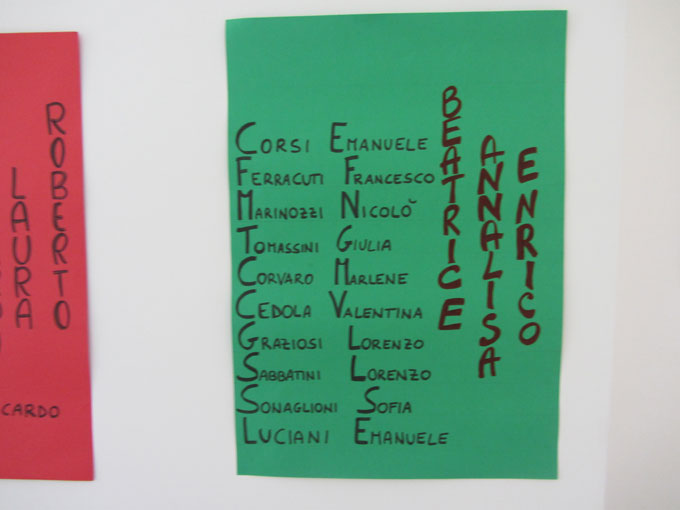 ROBERTO
LAURA
CARDO
CORSI EMANUELE
FERRACUTI FRANCESCO
MARINOZZI NICOLÒ
TOMASSINI GIULIA
CORVARO MARLENE
CEDOLA VALENTINA
GRAZIOSI LORENZO
SABBATINI LORENZO
SONAGLIONI SOFIA
LUCIANI EMANUELE
BEATRICE
ANNALISA
ENRICO